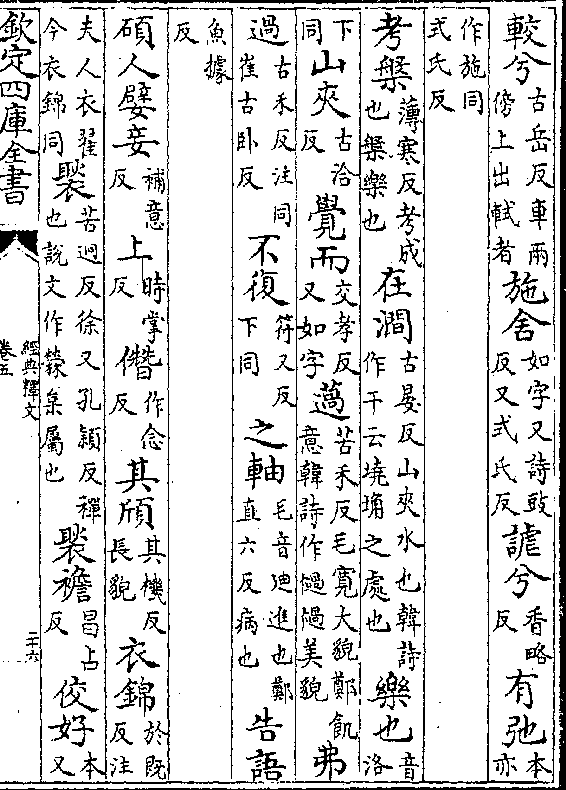 較兮古岳反車兩傍上出軾者施舍如字又詩豉反又式氏反謔兮香略反有弛本亦
作施同式氏反
考槃薄寒反考成也槃樂也在澗古晏反山夾水也韓詩作干云墝埆之處也樂也音洛
下同山夾古洽反覺而交孝反又如字薖苦禾反毛寬大貌鄭飢意韓詩作𠊬𠊬美貌弗
過古禾反注同崔古卧反不復符又反下同之軸毛音廸進也鄭直六反病也告語
魚據反
碩人嬖妾補意反上時掌反僭作念反其頎其機反長貌衣錦於既反注
夫人衣翟今衣錦同褧苦迥反徐又孔穎反襌也說文作檾枲屬也褧襜昌占反佼好本又
欽定四庫全書
經典釋文
卷五
二十六